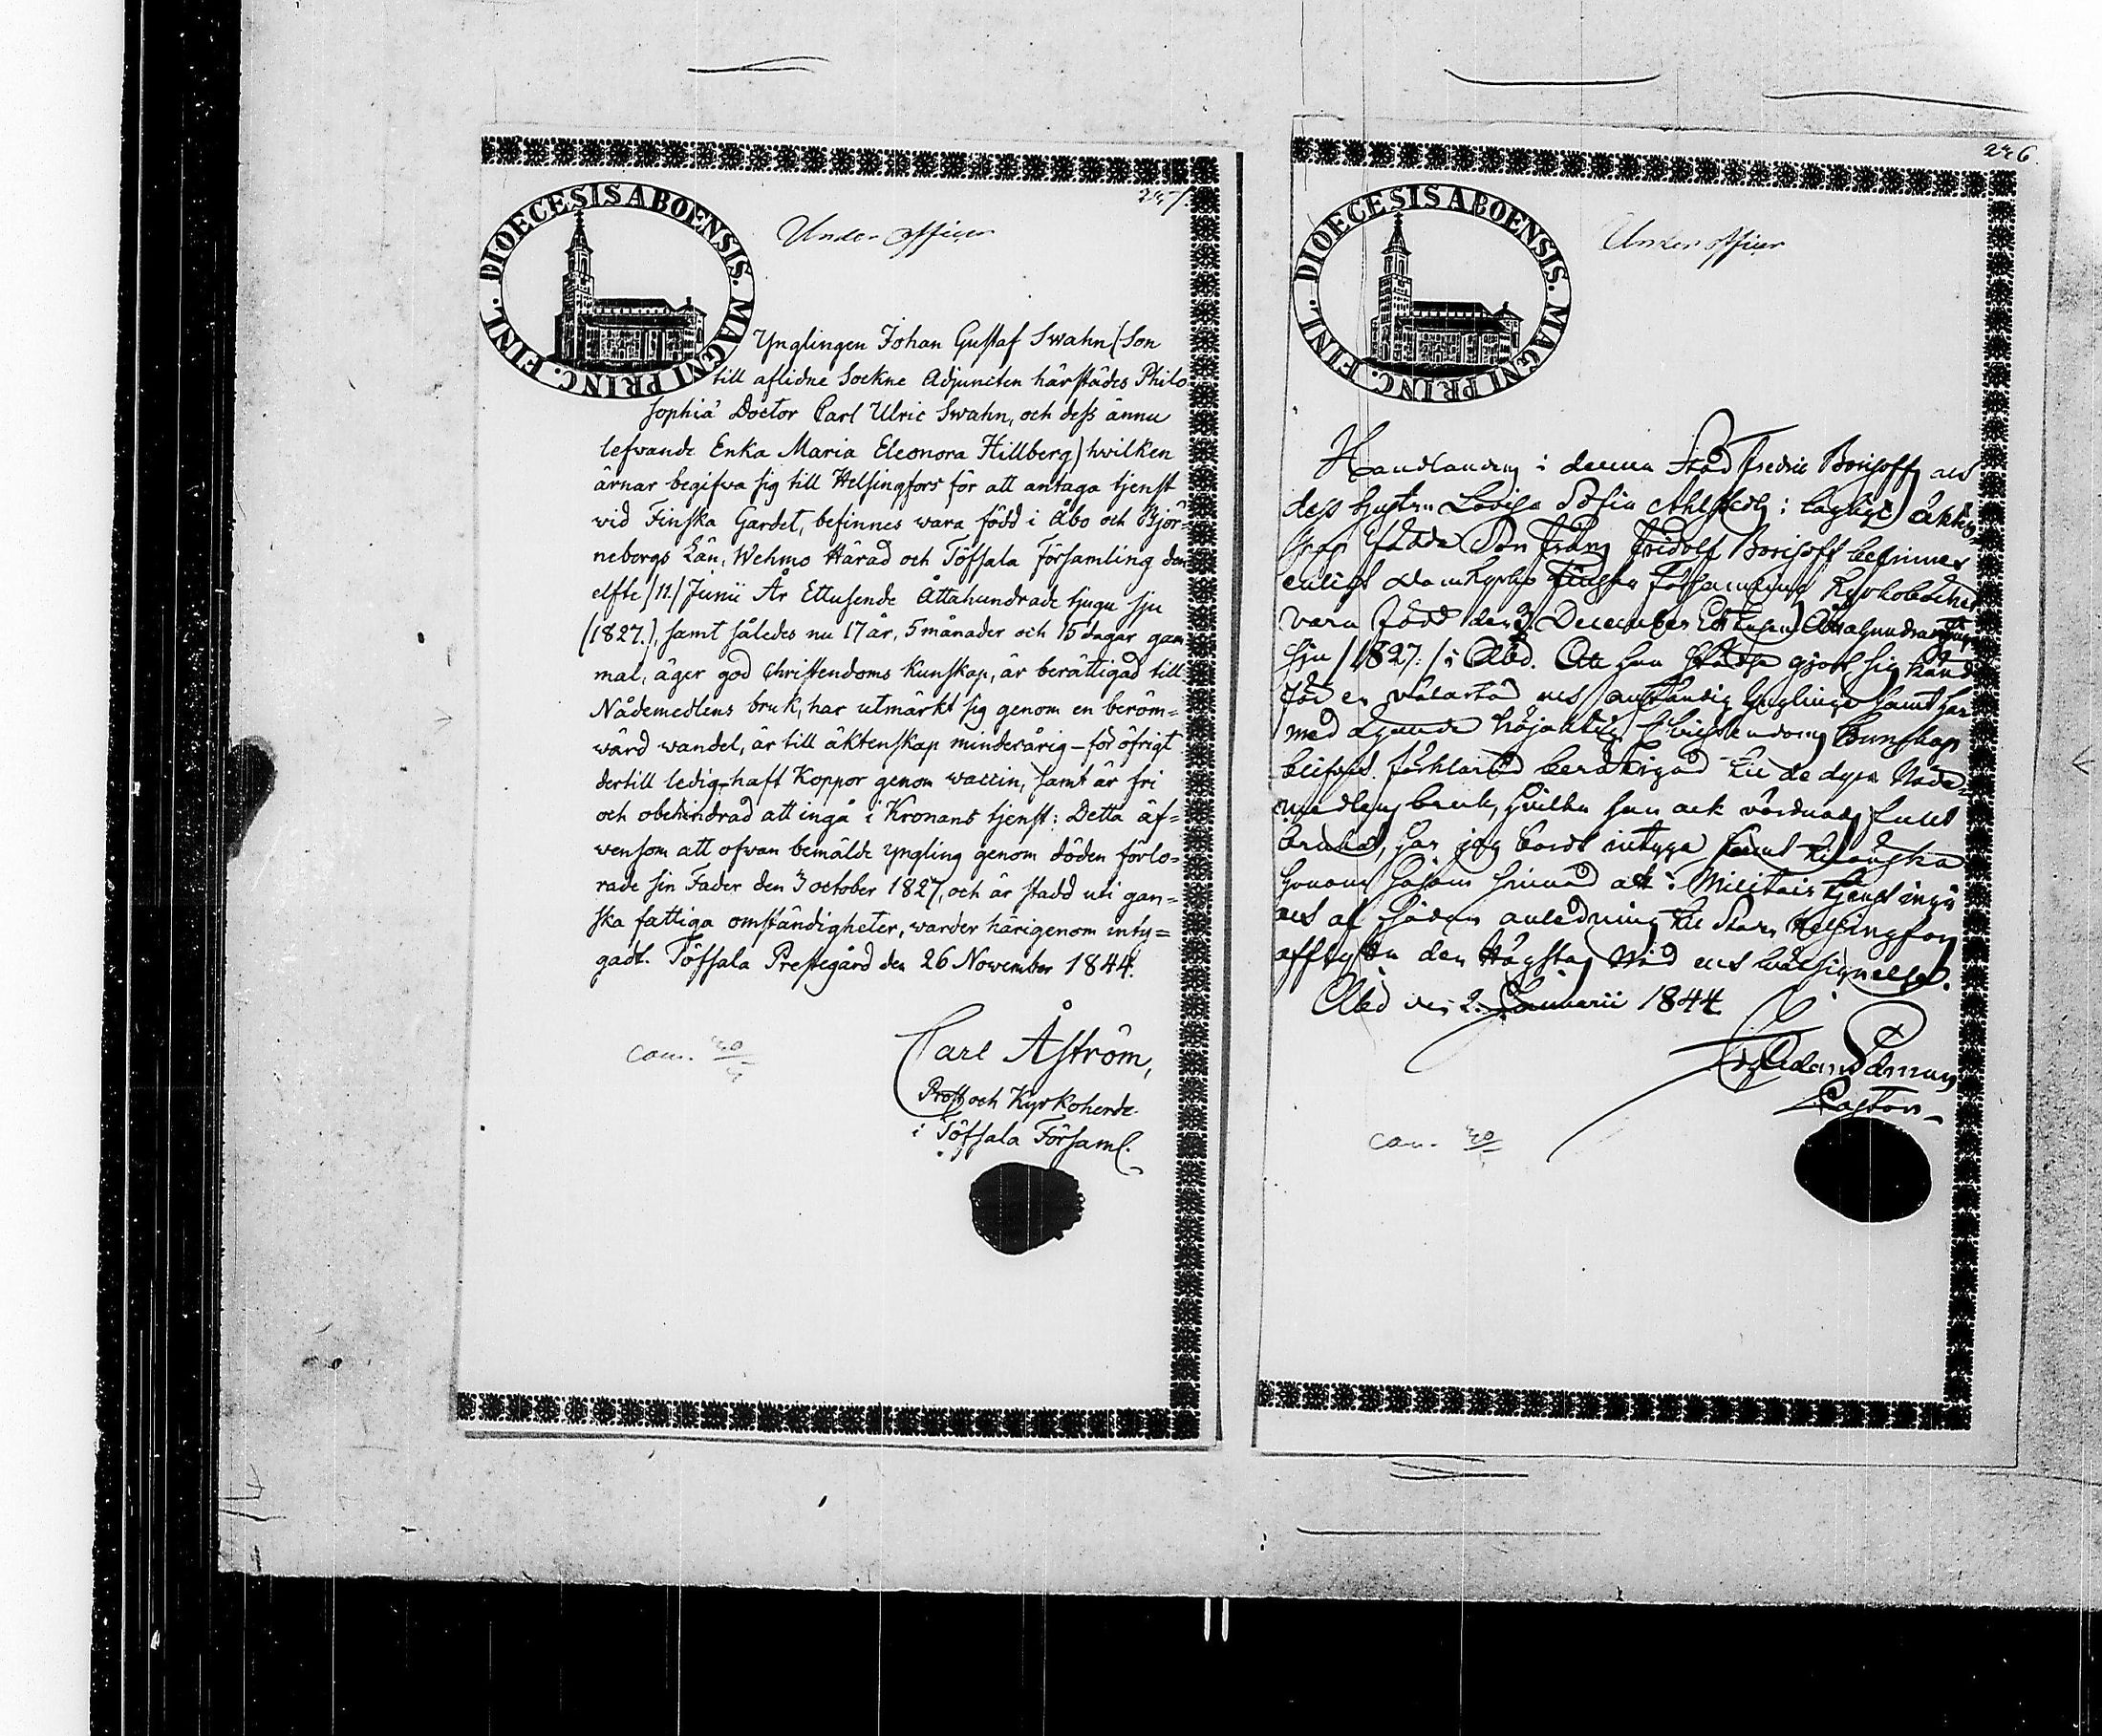 DIOECESIS ABOENSIS. MAGNI PRINC. FINL.
Under officer
Ynglingen Johan Gustaf Swahn (Son
till aflidne Sockne Adjuncten härstädes Philo
sophiä Doctor Carl Ulric Swahn, och dess ännu
lefwande Enka Maria Eleonora Hillberg) hwilken
ärnar begifwa sig till Helsingfors för att antaga tjenst
wid Finska Gardet, befinnes wara född i Åbo och Björ=
neborgs Län, Wehmo Härad och Töfsala Församling den
elfte /11./ Junii År Ettusende Åttahundrade tjugu sju
(1827.), samt således nu 17 år, 5 månader och 15 dagar gam
mal, äger god Christendoms Kunskap, är berättigad till
Nådemedlens bruk, har utmärkt sig genom en beröm=
wärd wandel, är till äktenskap minderårig – för öfrigt
dertill ledig – haft Koppor genom waccin, samt är fri
och obehindrad att ingå i Kronans tjenst: Detta äf=
wensom att ofwan bemälde yngling genom döden förlo=
rade sin Fader den 3 october 1827, och är stadd uti gan=
ska fattiga omständigheter, warder härigenom inty=
gadt. Töfsala Prestegård den 26 November 1844.
Carl Åström,
Prost och Kyrkoherde
i Töfsala Församl.
246.
DIOECESIS ABOENSIS. MAGNI PRINC. FINL.
Under officer
Handlanden i denna Stad Fredric Borisoffs och
dess hustru Lovisa Sofia Ahlstedts i lagligt äkten
skap födde Son Frans Fridolf Borisoff befinnes
enligt Domkyrko Finska Församlings Kyrkoböcker
vara född den 3 December Ett tusen Åttahundrade tjugu
sju /1827./ i Åbo. Att han städse gjort sig känd
för en välartad och anständig Yngling samt har
med ägande Christendoms Kunskap
blifvit förklarad berättigad till de dyra Nåde=
medlens bruk, hvilka han ock vördnads fullt
brukat, har jag bordt intyga samt
honom att i Militair tjenst ingå
och af sådan anledning till Staden Helsingfors
afflytta den Högstas Nåd och välsignelse.
Åbo den 2 Januarii 1844
Pastor